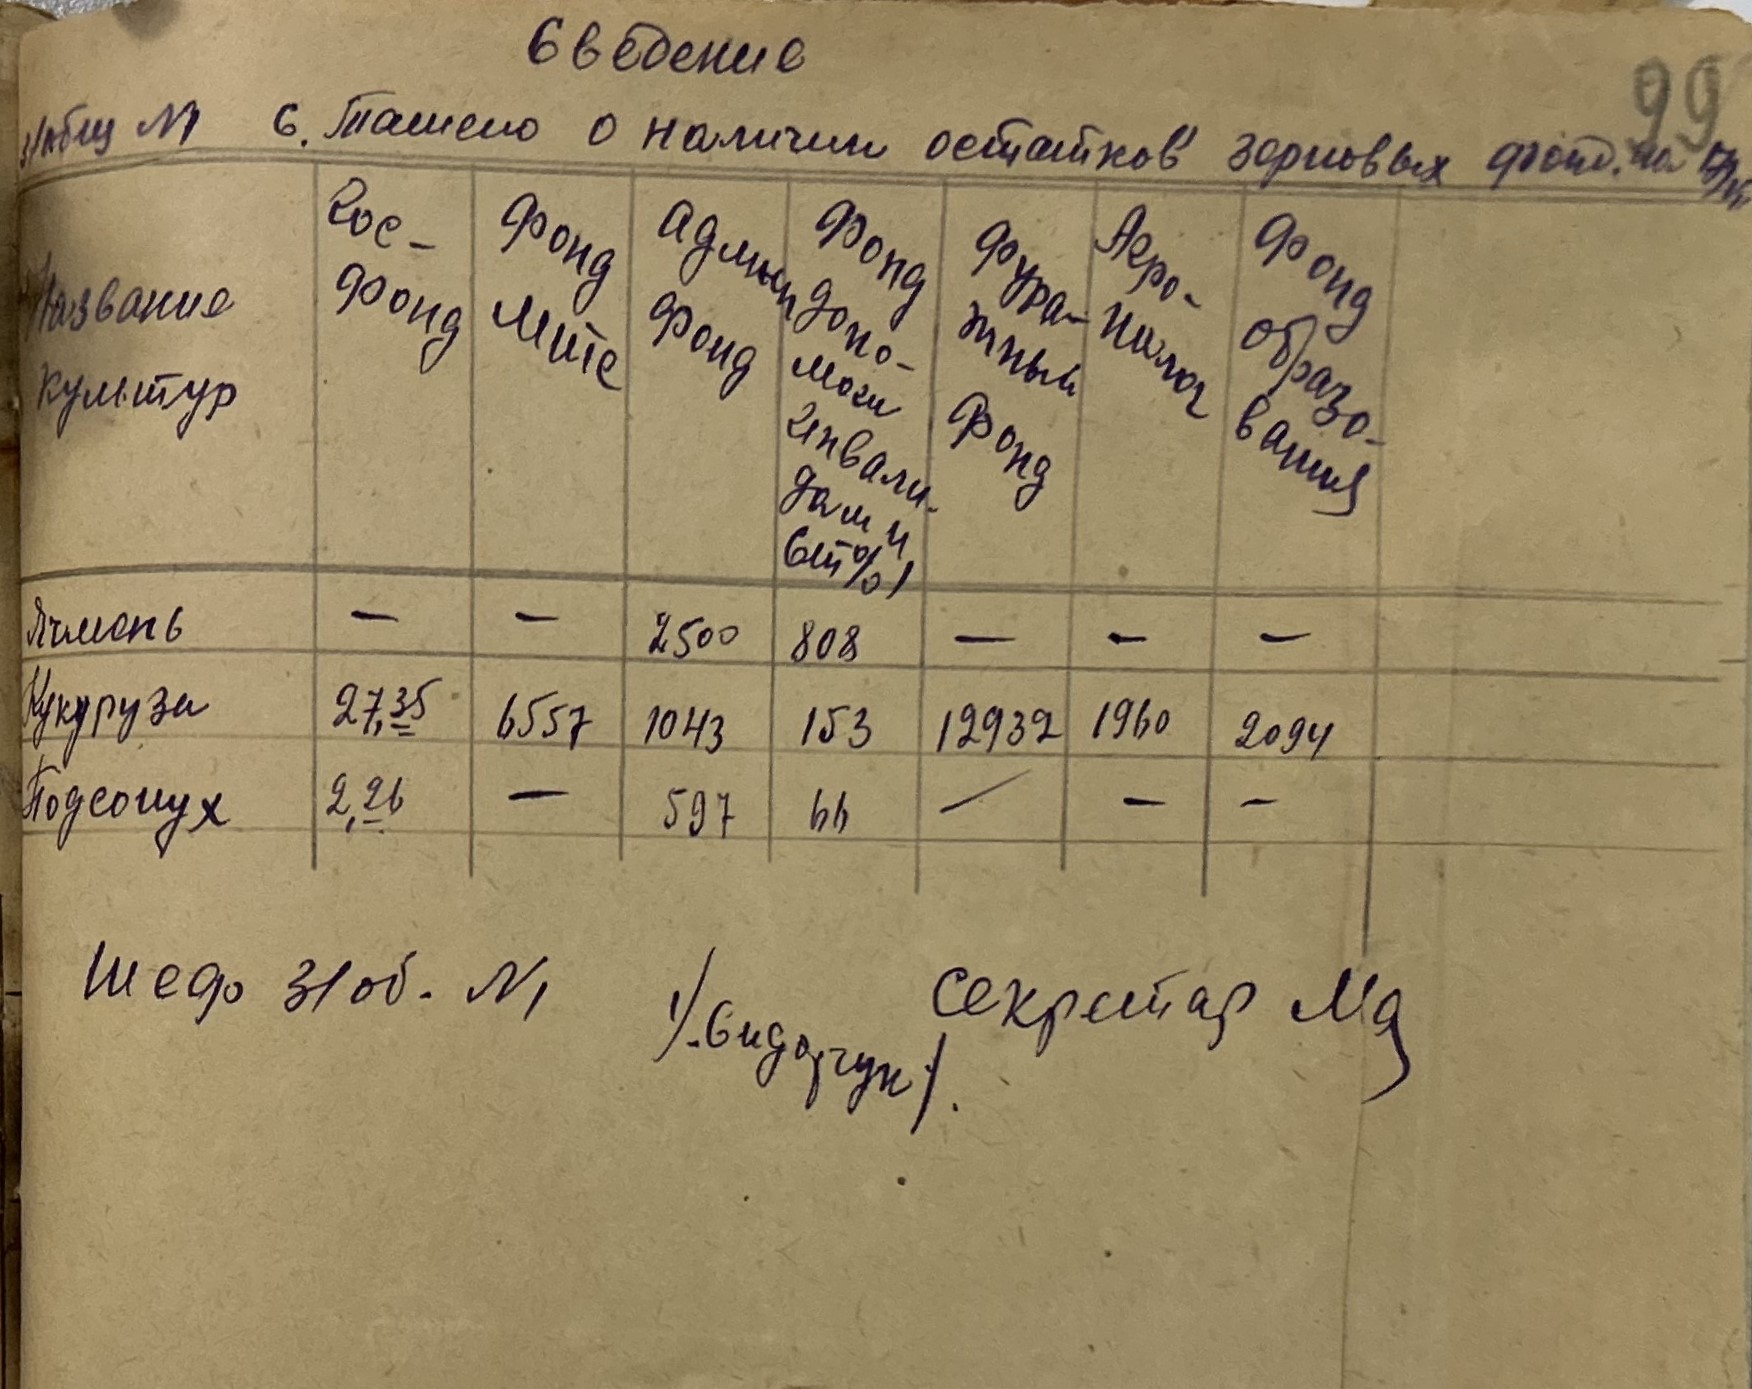 Сведение
99
З/общ №1 С. Ташено о наличии остатков зерновых фонд. на
Название культур
Гос-Фонд
Фонд Мите
Админ Фонд
Фонд допо-моги Инвали-дам и
Фура-жный Фонд
Агро-Налог
Фонд образо-вания
Ячмень — — 2500 808 — — —
Кукуруза 27,35 6557 1043 153 12932 1960 2094
Подсолнух 2,26 — 597 66 — — —
Шеф З/об. №1 /Сидорчук/. Секретар